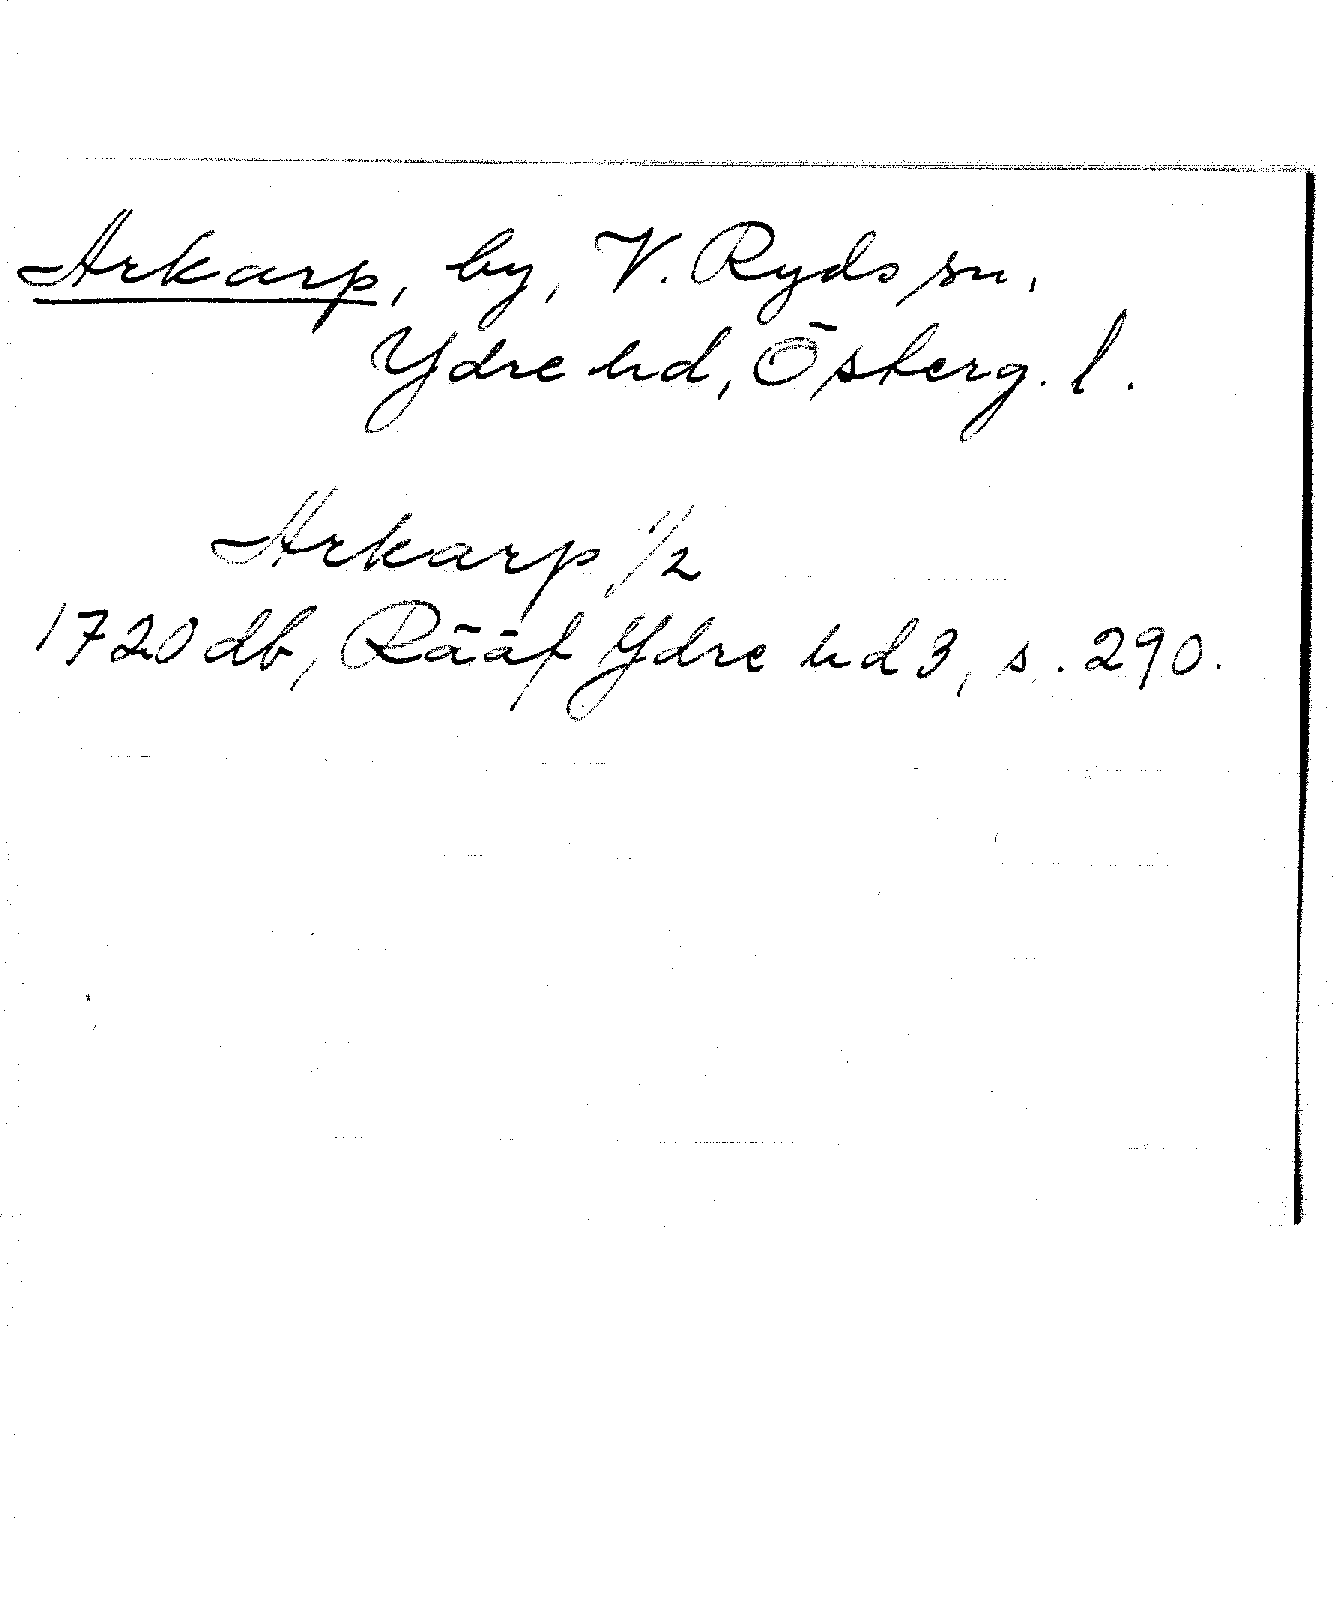 Arkarp, by, V. Ryds sn,
Ydre hd, Österg. l.
Arkarp 1/2
1720 db, Rääf Ydre hd 3, s. 290.